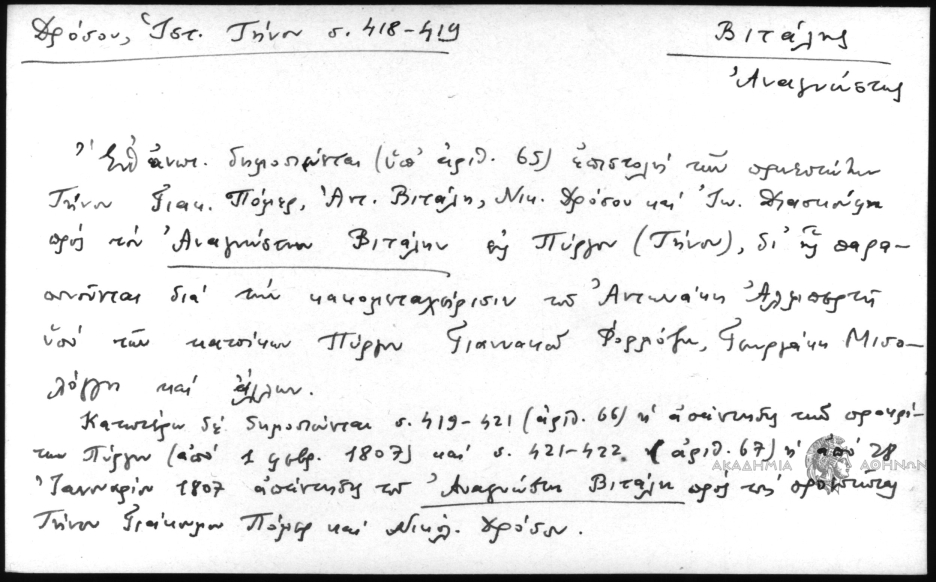 Δρόσου, Ἱστ. Τήνου σ. 418-419
Βιτάλης
Ἀναγνώστης
Ἐνθ' ἀνωτ. δημοσιεύεται (ὑπ' ἀριθ. 65) ἐπιστολή τῶν προεστώτων
Τήνου Γιακ. Πώμερ, Ἀντ. Βιτάλη, Νικ. Δρόσου καί Ἰω.
πρός τόν Ἀναγνώστην Βιτάλην εἰς Πύργον (Τήνου), δι' ἧς παρα-
πονοῦνται διά τήν κακομεταχείρισιν τοῦ Ἀντωνάκη
ὑπό τῶν κατοίκων Πύργου Γιαννακοῦ Γεωργάκη Μισο-
λόγγη καί ἄλλων.
Κατωτέρω δέ δημοσιεύεται σ. 419-421 (ἀριθ. 66) ἡ ἀπάντησις τῶν προκρί-
των Πύργου (ἀπό 1 φεβρ. 1807) καί σ. 421-422 (ἀριθ. 67) ἡ ἀπό 28
Ἰανουαρίου 1807 ἀπάντησις τοῦ Ἀναγνώστη Βιτάλη πρός τούς προεστῶτας
Τήνου Γιάκουμον Πώμερ καί Νικόλ. Δρόσον.
ΑΚΑΔΗΜΙΑ ΑΘΗΝΩΝ